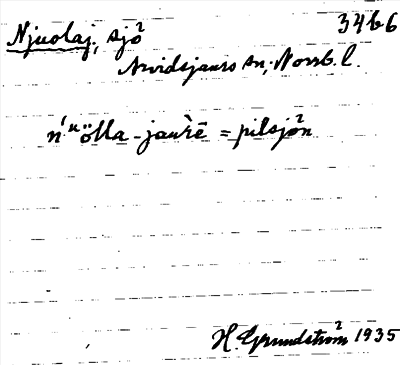 Njuolaj, sjö² 3466
Arvidsjaurs sn; Norrb. l.
ń ᵘölla - jau̯rē = pilsjön²
H. Grundström² 1935